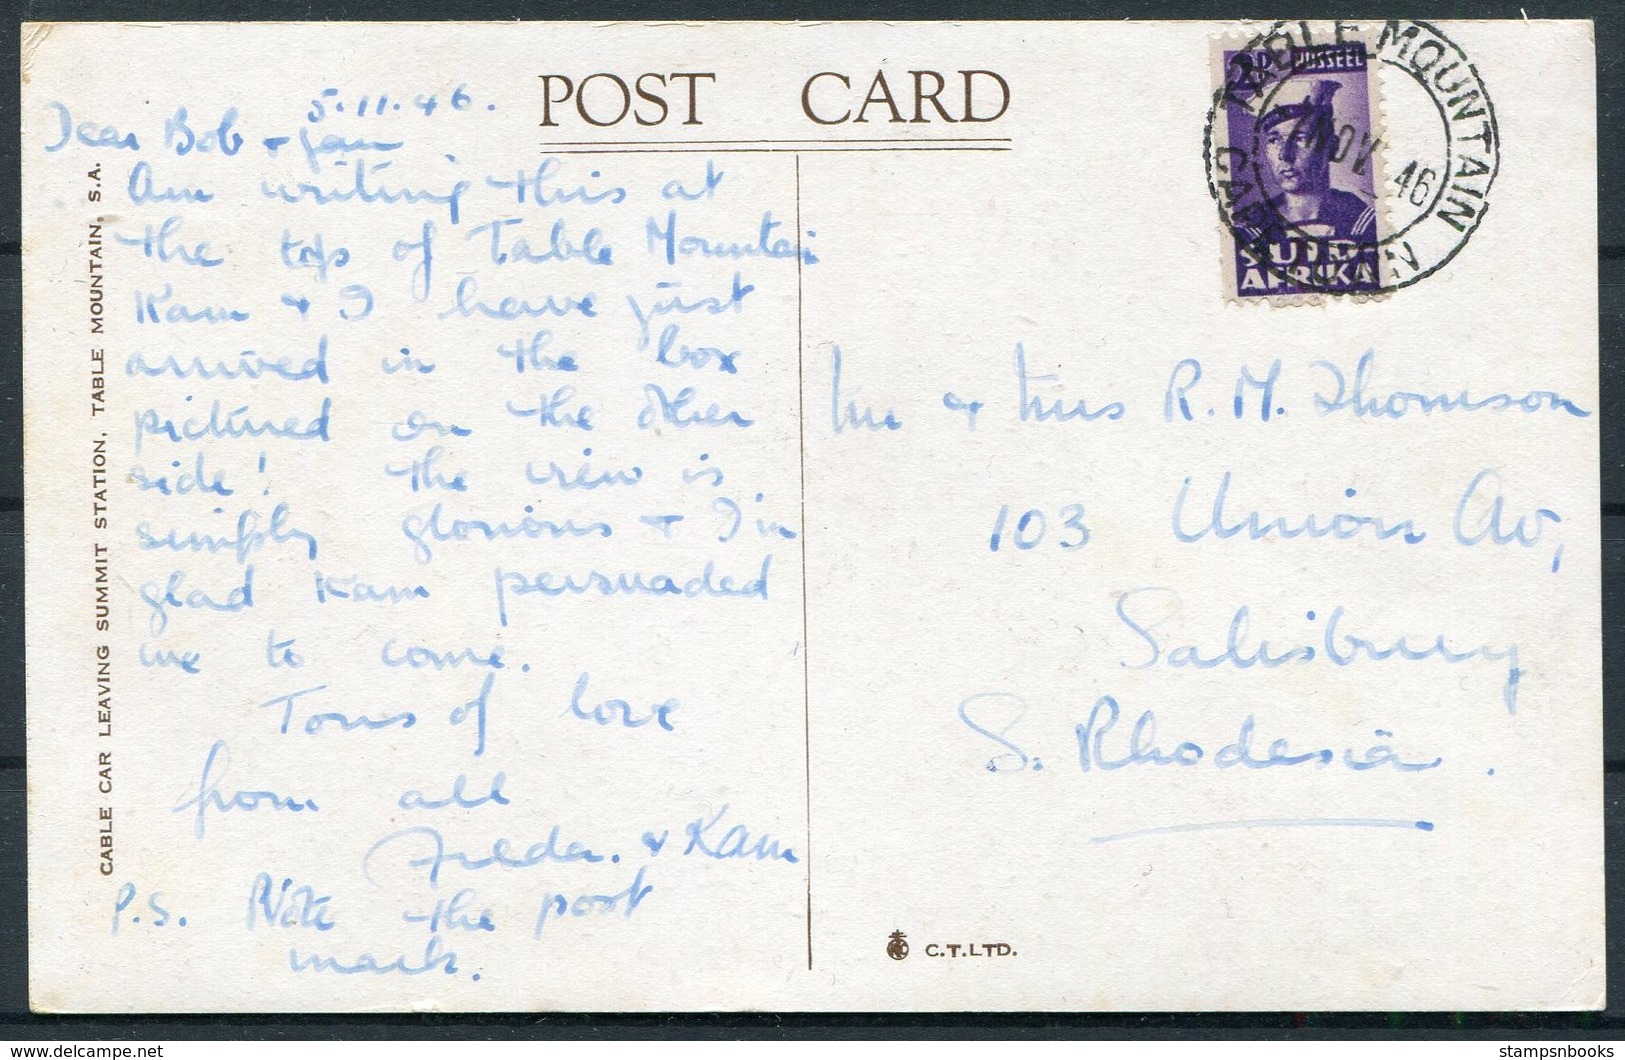 POST CARD
5.11.46.
Dear Bob + Jan
Am writing this at
the top of Table Mountain
Kam + I have just
arrived in the box
pictured on the other
side! The view is
simply glorious + I'm
glad Kam persuaded
me to come.
Tons of love
from all
Freda. + Kam
P.S. Note the post
mark.
CABLE CAR LEAVING SUMMIT STATION, TABLE MOUNTAIN, S.A.
TABLE MOUNTAIN
7 NOV 46
2D POSSEEL
SUID-
AFRIKA
Mr + Mrs R. M. Thomson
103 Union Av,
Salisbury
S. Rhodesia.
C.T.LTD.
stampsnbooks
delcampe.net